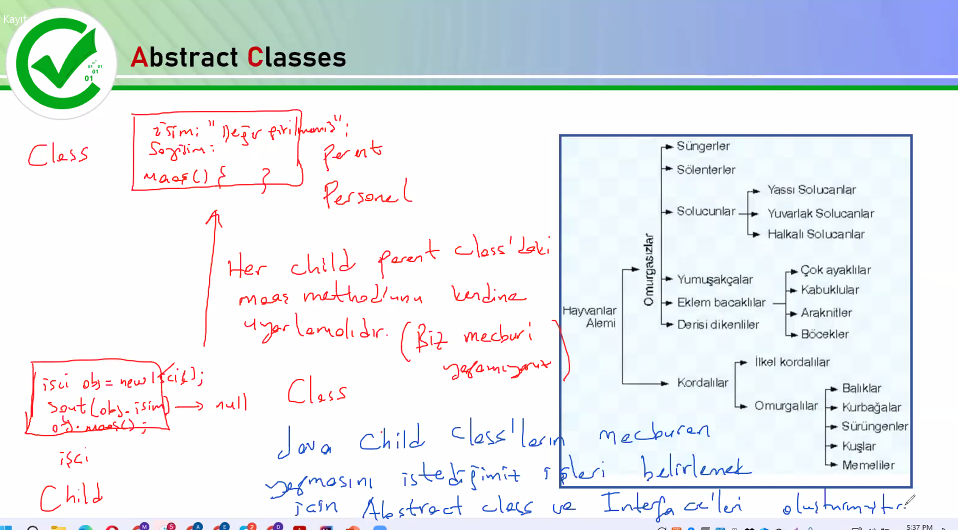 Kayıt
Abstract Classes
01 01
01
01
Class
isim: "Değer girilmemiş";
Soyisim:
maas() { }
Perent
Personel
Her child parent class'daki
maas method'unu kendine
uyarlamalıdır. (Biz mecburi
yapamıyoruz)
isci obj = new Isci();
Sout(obj.isim) → null
obj.maas();
işci
Child
Class
Java Child class'ların mecburen
yapmasını istediğimiz işleri belirlemek
icin Abstract class ve Interface'leri oluşturmuştur
Hayvanlar
Alemi
Omurgasızlar
Süngerler
Sölenterler
Solucunlar
Yassı Solucanlar
Yuvarlak Solucanlar
Halkalı Solucanlar
Yumuşakçalar
Eklem bacaklılar
Derisi dikenliler
Çok ayaklılar
Kabuklular
Araknitler
Böcekler
Kordalılar
İlkel kordalılar
Omurgalılar
Balıklar
Kurbağalar
Sürüngenler
Kuşlar
Memeliler
5:37 PM